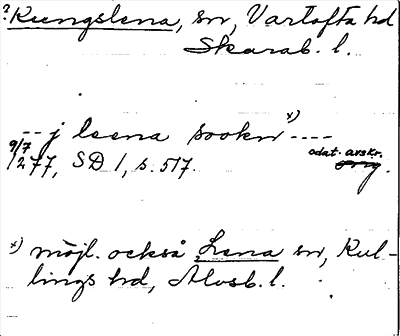 ? Kungslena, sn, Vartofta hd
Skarab. l.
-- j leena sookn x) ----
9/7 1277, SD 1, s. 517. odat. avskr.
x) möjl. också Lena sn, Kul-
lings hd, Älvsb. l.